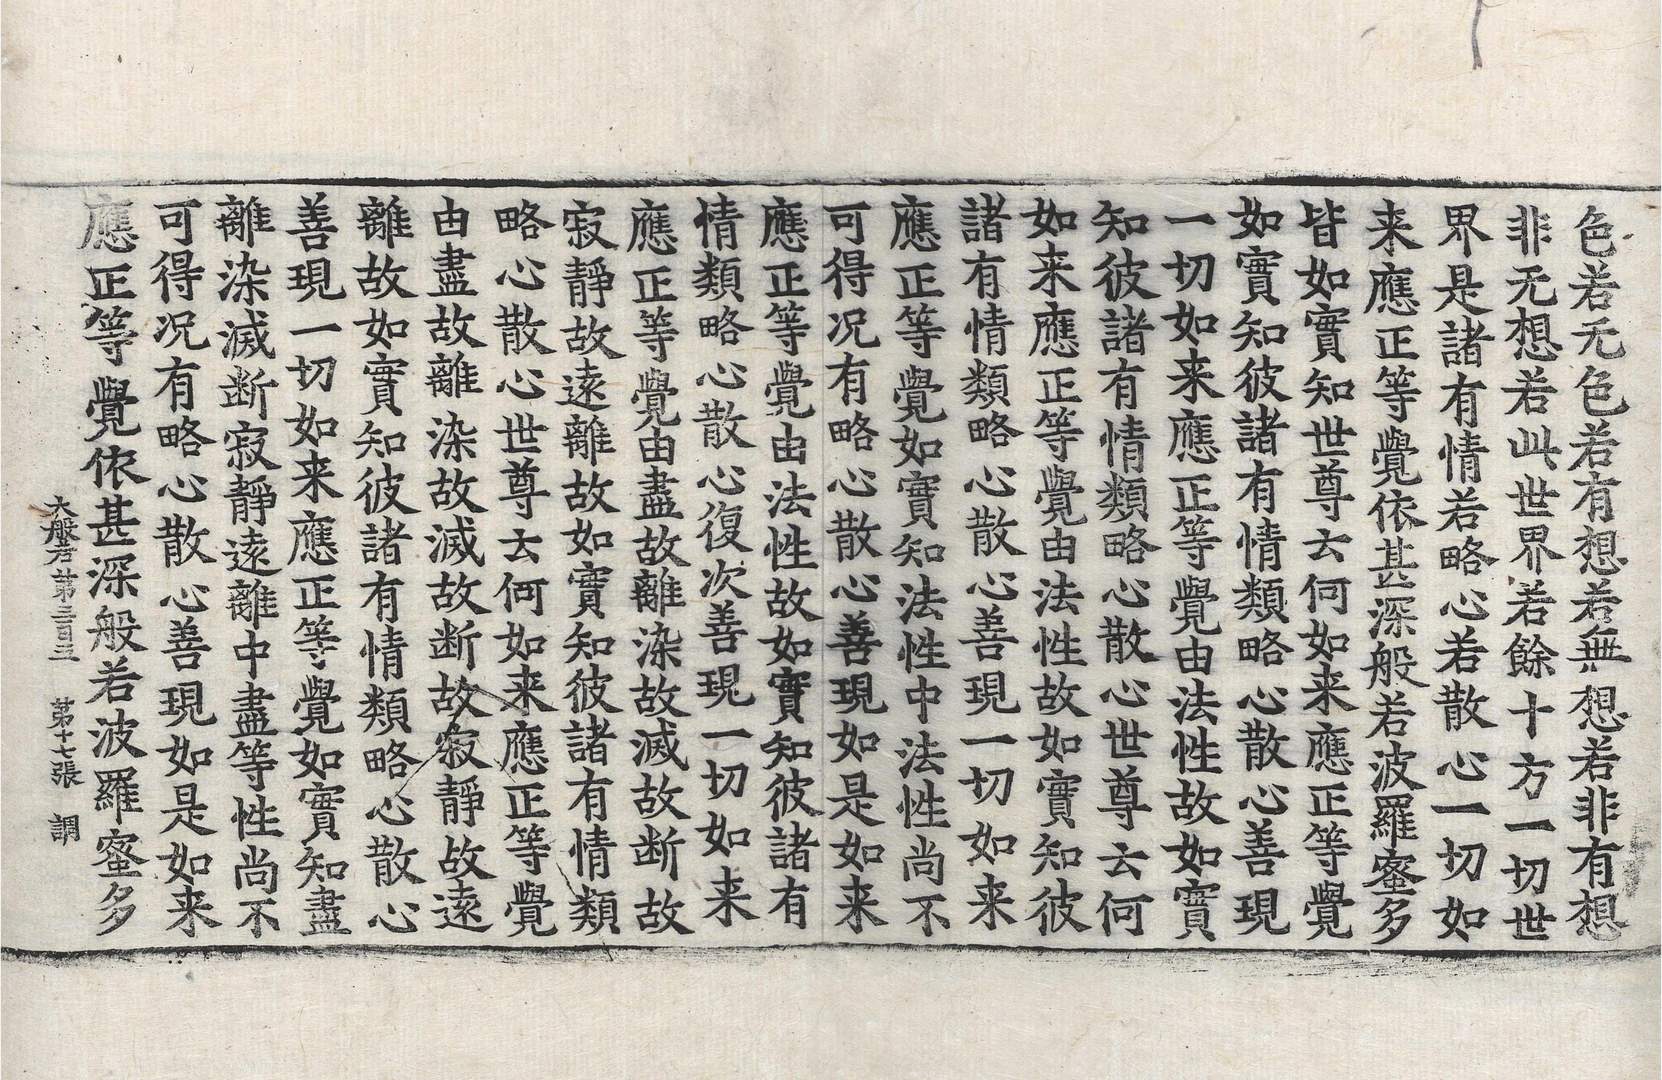 色若无色若有想若無想若非有想
非无想若此世界若餘十方一切世
界是諸有情若略心若散心一切如
来應正等覺依甚深般若波羅蜜多
皆如實知世尊云何如来應正等覺
如實知彼諸有情類略心散心善現
一切如来應正等覺由法性故如實
知彼諸有情類略心散心世尊云何
如来應正等覺由法性故如實知彼
諸有情類略心散心善現一切如来
應正等覺如實知法性中法性尚不
可得况有略心散心善現如是如来
應正等覺由法性故如實知彼諸有
情類略心散心復次善現一切如来
應正等覺由盡故離染故滅故断故
寂靜故遠離故如實知彼諸有情類
略心散心世尊云何如来應正等覺
由盡故離染故滅故断故寂靜故遠
離故如實知彼諸有情類略心散心
善現一切如来應正等覺如實知盡
離染滅断寂靜遠離中盡等性尚不
可得况有略心散心善現如是如来
應正等覺依甚深般若波羅蜜多
大般若第三百五 第十七張 調